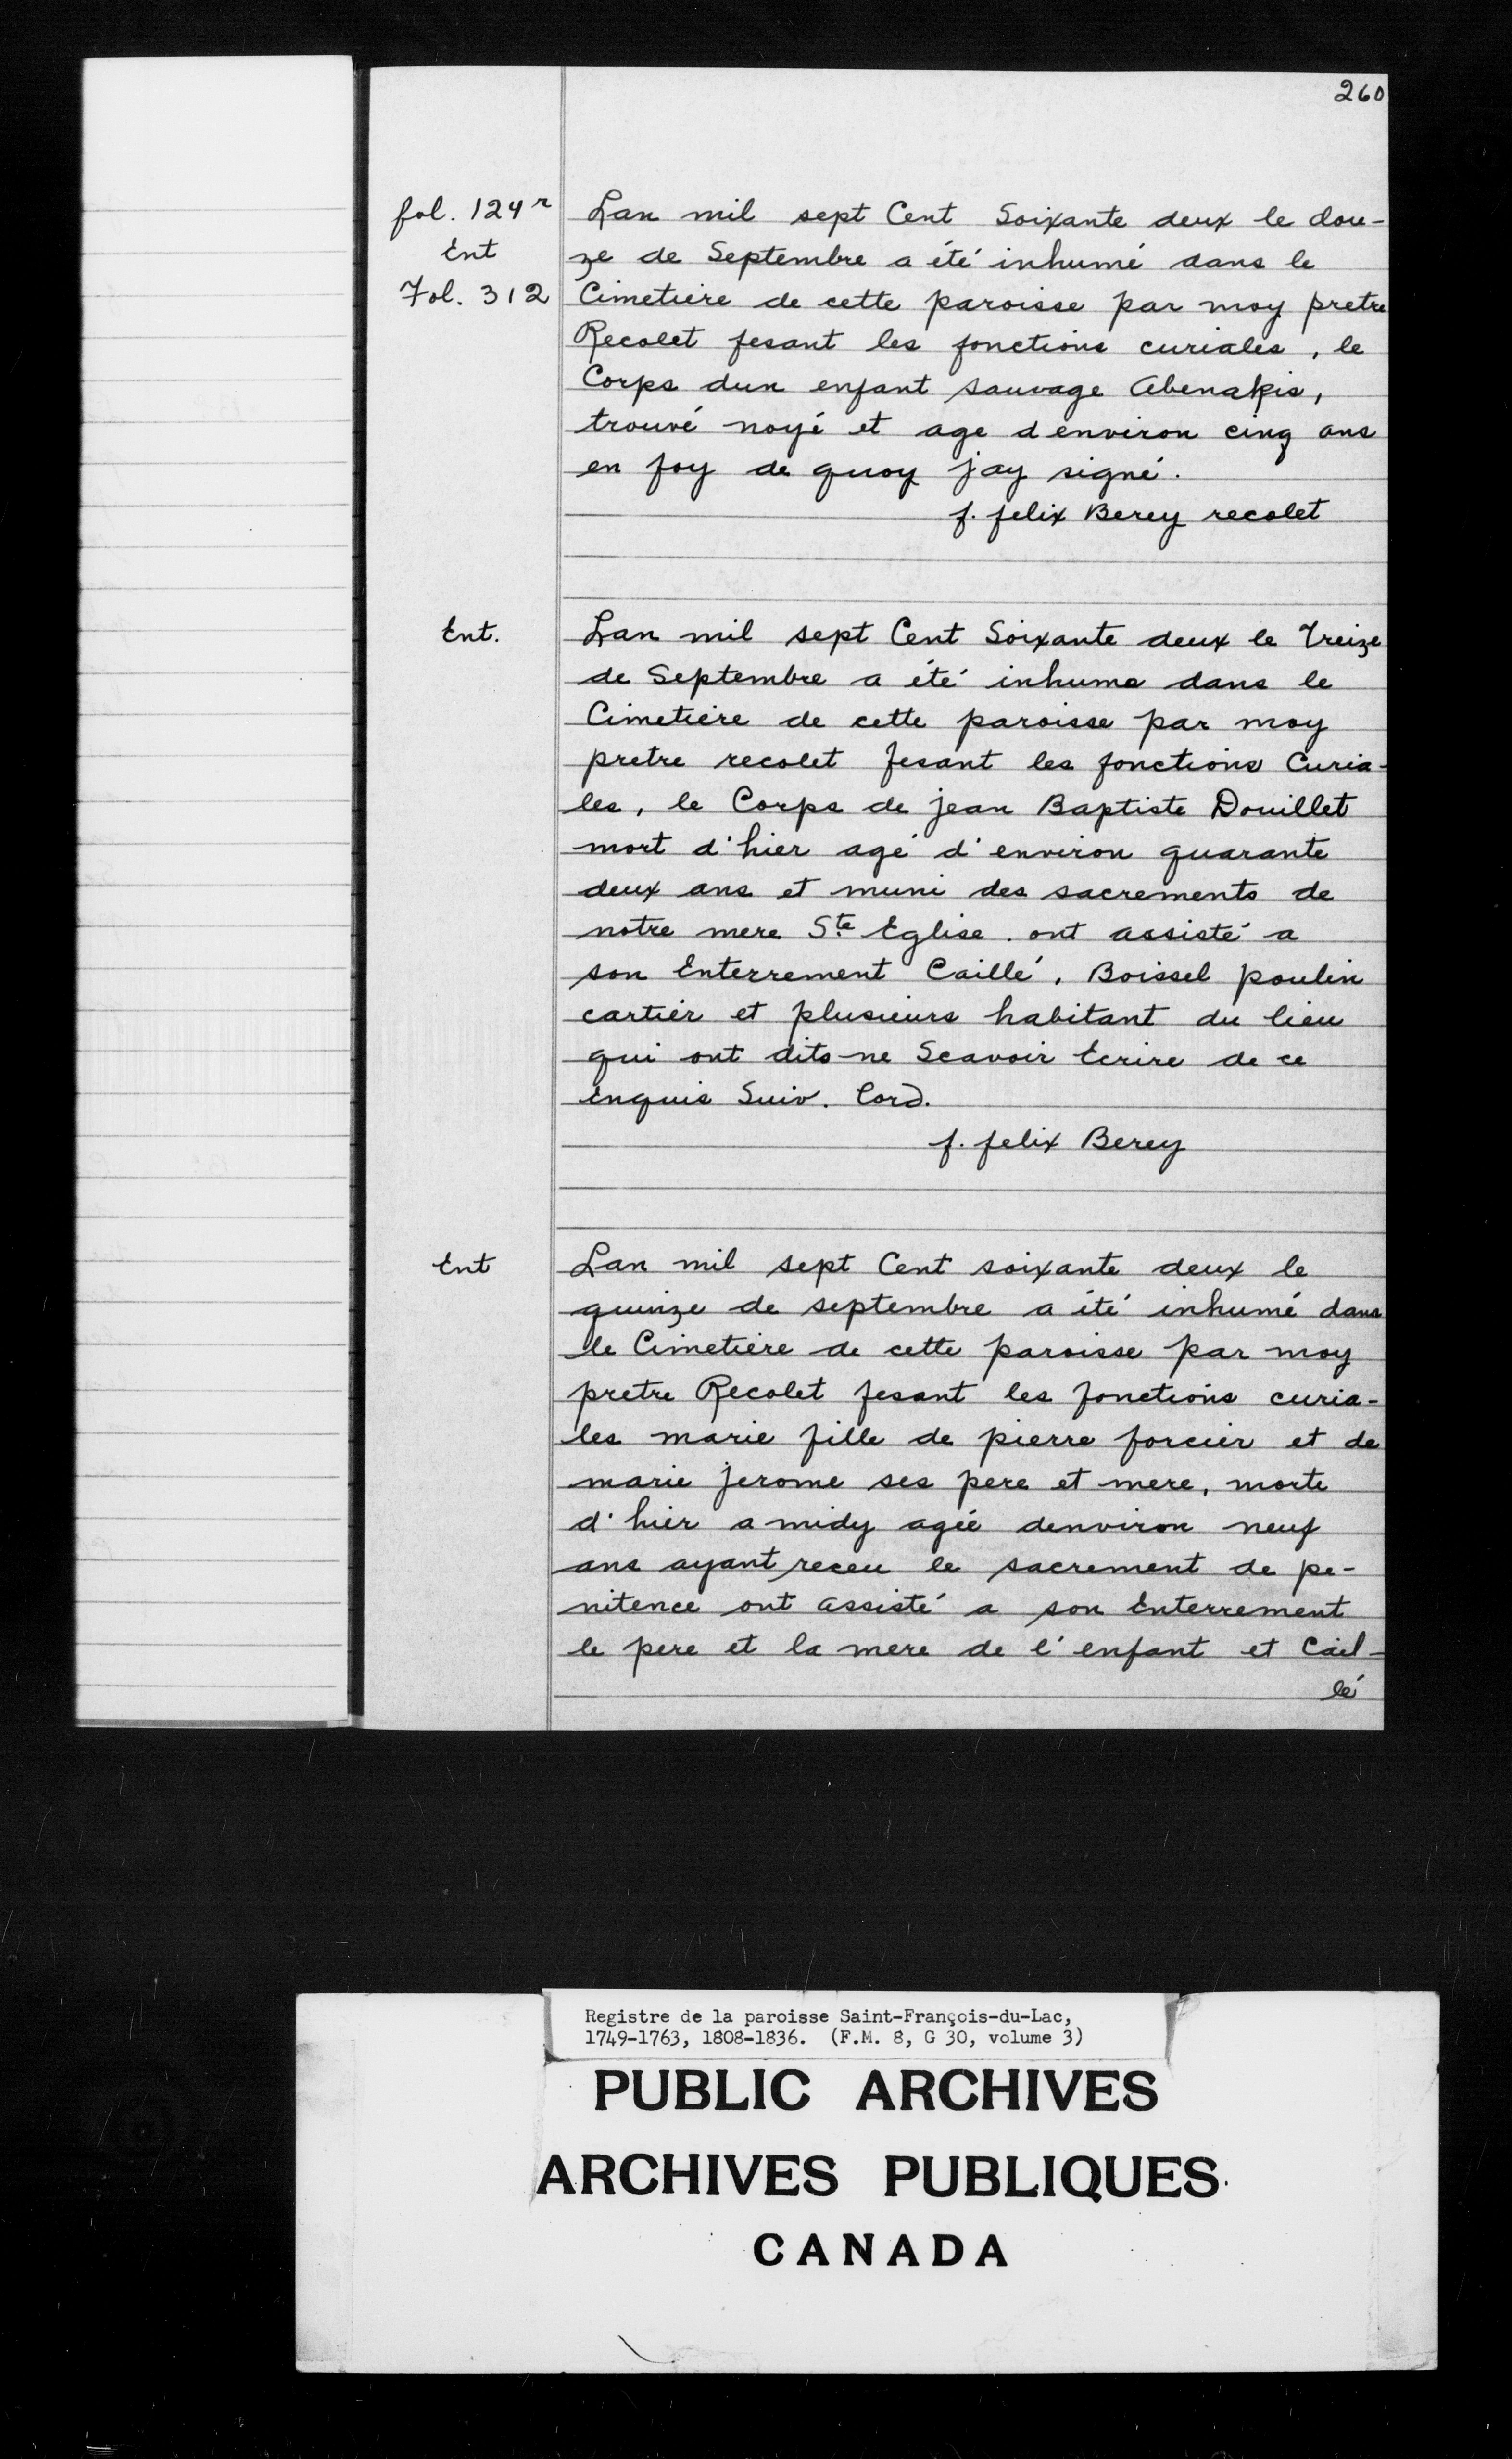 260
fol. 124r
Ent
Fol. 312
Lan mil sept Cent Soixante deux le dou-
ze de Septembre a été inhumé dans le
Cimetiere de cette paroisse par moy pretre
Recolet fesant les fonctions curiales, le
Corps dun enfant sauvage Abenakis,
trouvé noyé et age denviron cinq ans
en foy de quoy jay signé.
f. felix Berey recolet
Ent.
Lan mil sept Cent Soixante deux le Treize
de Septembre a été inhume dans le
Cimetiere de cette paroisse par moy
pretre recolet fesant les fonctions Curia-
les, le Corps de jean Baptiste Douillet
mort d'hier agé d'environ quarante
deux ans et muni des sacrements de
notre mere Ste Eglise. ont assisté a
son Enterrement Caillé, Boissel poulin
cartier et plusieurs habitant du lieu
qui ont dits ne Scavoir Ecrire de ce
enquis Suiv. Lord.
f. felix Berey
Ent
Lan mil sept Cent soixante deux le
quinze de septembre a été inhumé dans
le Cimetiere de cette paroisse par moy
pretre Recolet fesant les fonctions curia-
les marie fille de pierre forcier et de
marie jerome ses pere et mere, morte
d'hier a midy agée denviron neuf
ans ayant receu le sacrement de pe-
nitence ont assisté a son Enterrement
le pere et la mere de l'enfant et Cail-
lé
Registre de la paroisse Saint-François-du-Lac,
1749-1763, 1808-1836. (F.M. 8, G 30, volume 3)
PUBLIC ARCHIVES
ARCHIVES PUBLIQUES
CANADA